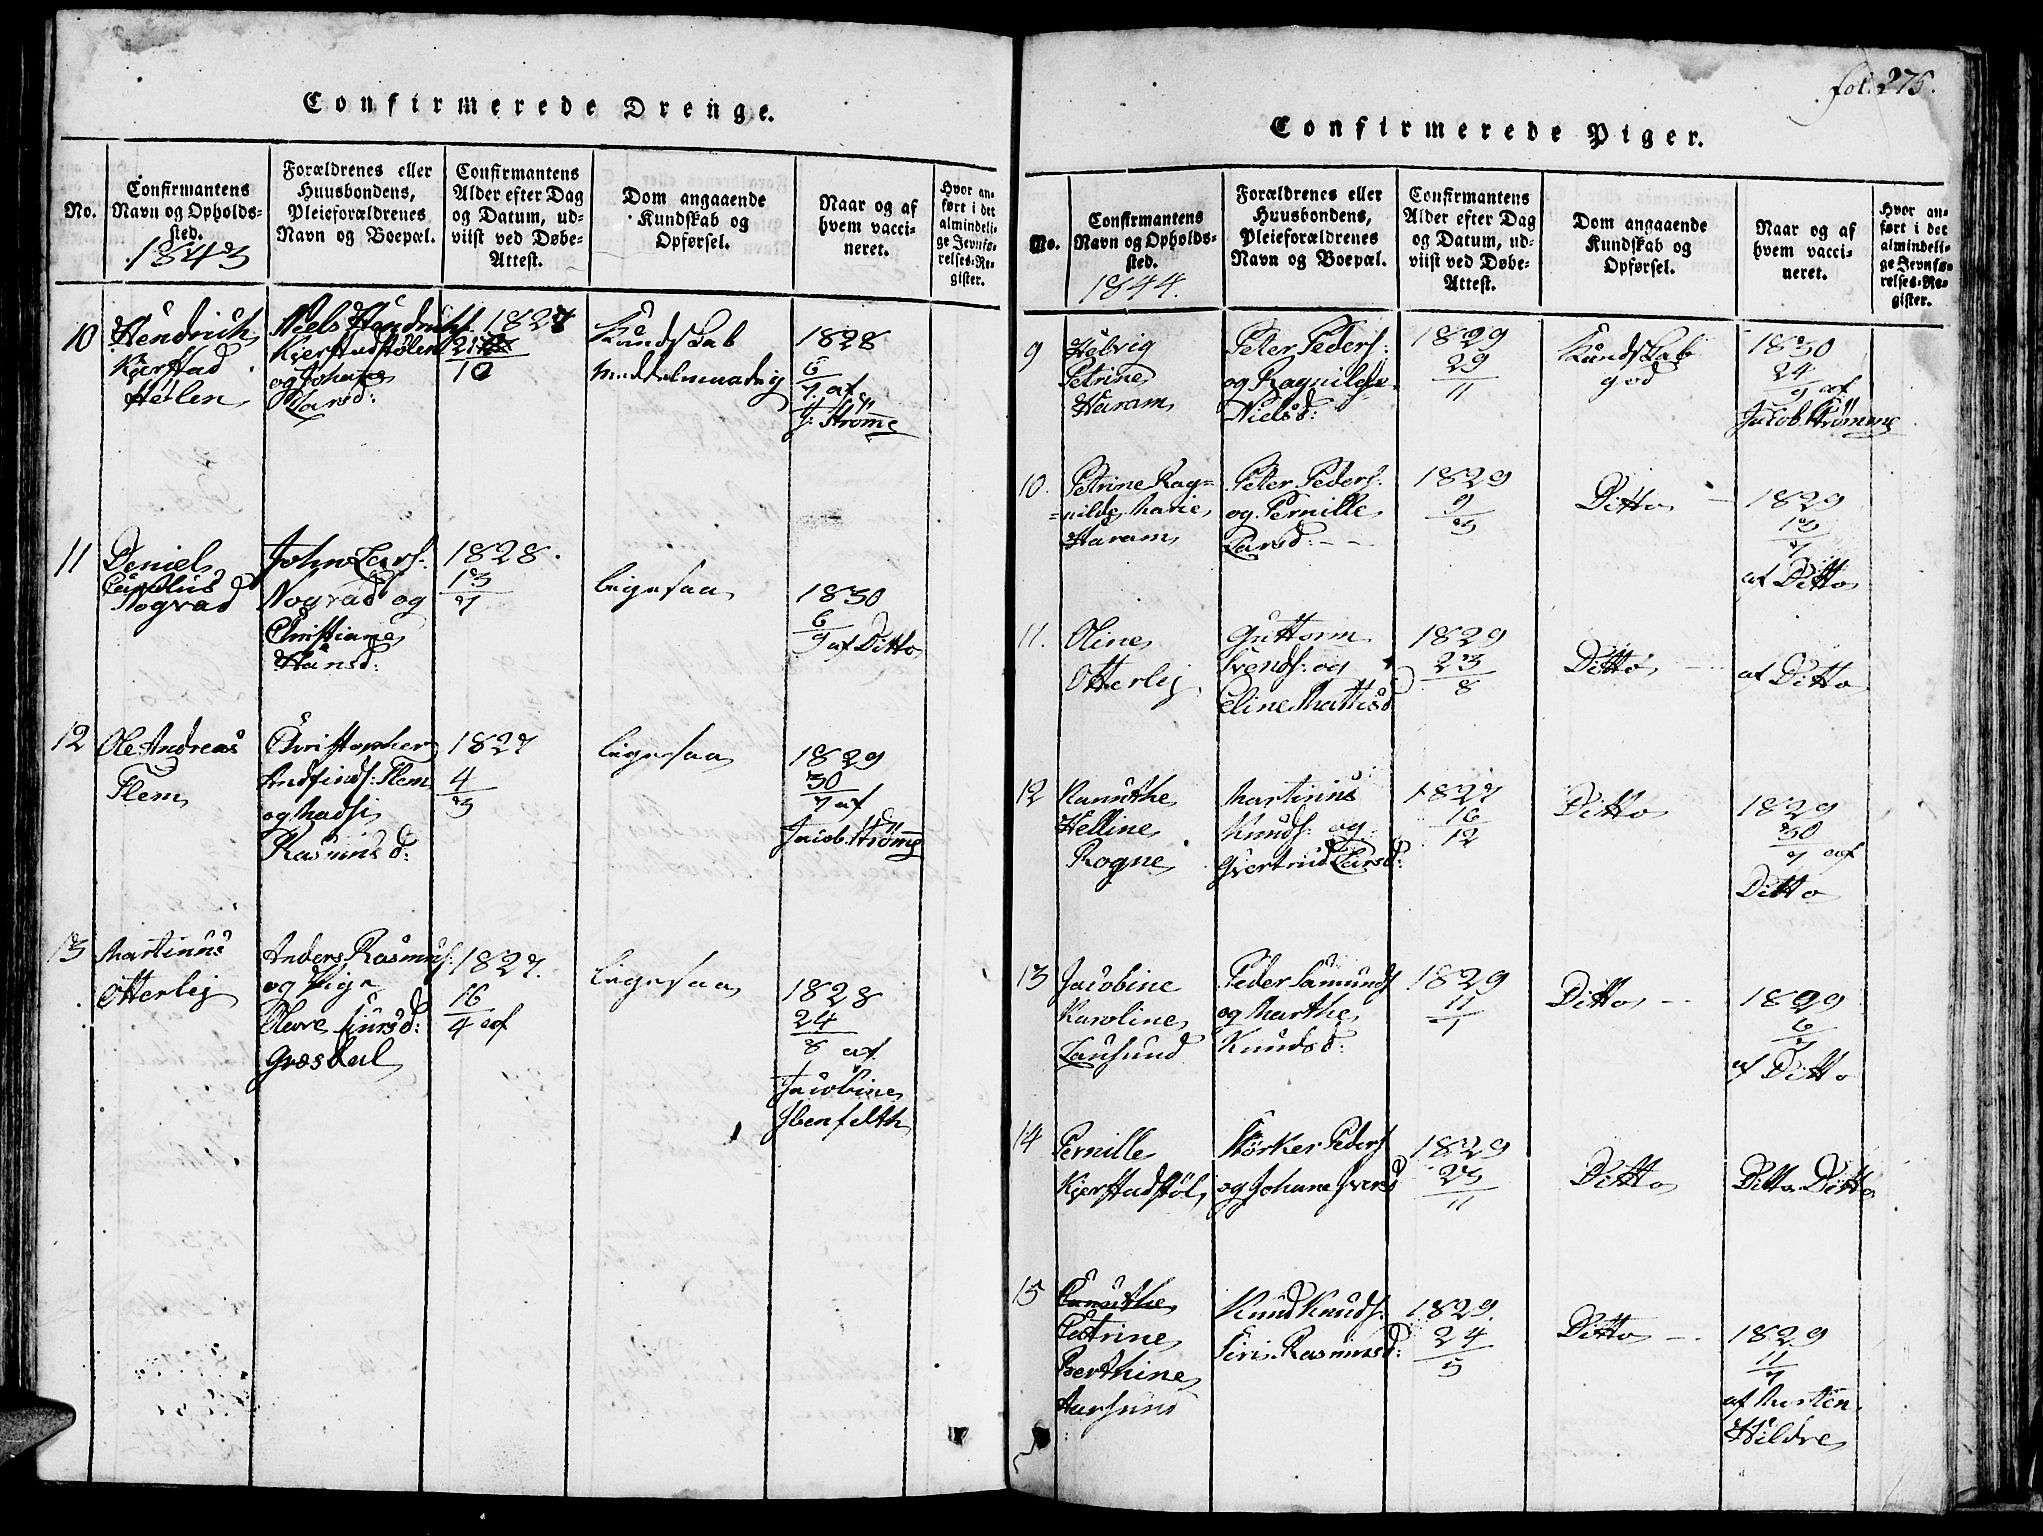 Confirmerede Drenge.
No.
Confirmantens
Navn og Opholds-
sted.
1843
Forældrenes eller
Huusbondens,
Pleieforældrenes
Navn og Boepæl.
Confirmantens
Alder efter Dag
og Datum, ud-
viist ved Døbe-
Attest.
Dom angaaende
Kundskab og
Opførsel.
Naar og af
hvem vacci-
neret.
Hvor an-
ført i det
almindeli-
ge Jevnfø-
relses-Re-
gister.
10
Hendrich
Kjerstad
Hølen
Niels Hendrichs.
Kjerstadhølen
og Johane
Larsd:
1827
21
10
Kundskab
middelmaadig
1828
6
7 af
J. Strømme
11
Deniel
Nogvad
John Lars:
Nogvad og
Christiane
Hansd:
1828.
13
7
ligesaa
1830
6
9 af Ditto
12
Ole Andreas
Flem
Christopher
Andfinds: Flem
og Madsi
Rasmusd:
1827
4
3
ligesaa
1829
30
7 af
Jacob Strømme
13
Martinus
Otterlei
Anders Rasmus:
og Pige
Olave Siursd:
Græskal
1827.
16
4 af
ligesaa
1828
24
8 af
Jacobine
Ibenfelth
fol. 275.
Confirmerede Piger.
No.
Confirmantens
Navn og Opholds-
sted.
1844.
Forældrenes eller
Huusbondens,
Pleieforældrenes
Navn og Boepæl.
Confirmantens
Alder efter Dag
og Datum, ud-
viist ved Døbe-
Attest.
Dom angaaende
Kundskab og
Opførsel.
Naar og af
hvem vacci-
neret.
Hvor an-
ført i det
almindeli-
ge Jevnfø-
relses-Re-
gister.
9
Helvig
Petrine
Haram
Peter Peders:
og Ragnilde
Nielsd:
1829
29
11
Kundskab
god
1830
24
9 af
Jacob Strømme
10.
Petrine Rag=
=nilde Marie
Haram
Peter Peders:
og Pernille
Larsd:
1829
9
3
Ditto
1829
13
7
af Ditto
11.
Oline
Otterlei
Guttorm
Svends: og
Eline Mattisd
1829
23
8
Ditto
af Ditto
12
Kanuthe
Helline
Rogne
Martinus
Knuds: og
Giertrud Larsd:
1827
16
12
Ditto
1829
30
7 af
Ditto
13
Jacobine
Karoline
Lausund
Peder Samunds
og Marthe
Knudsd:
1829
11
1
Ditto
1829
6
7
af Ditto
14
Pernille
Kjerstadhøl
Størker Peders
og Johane Iversd
1829
23
11
Ditto
Ditto Ditto
15
Kanuthe
Petrine
Berthine
Aursund
Knud Knuds.
Siri Rasmusd:
1829.
24
5
Ditto
1829
11
7
af Morten
Hildre